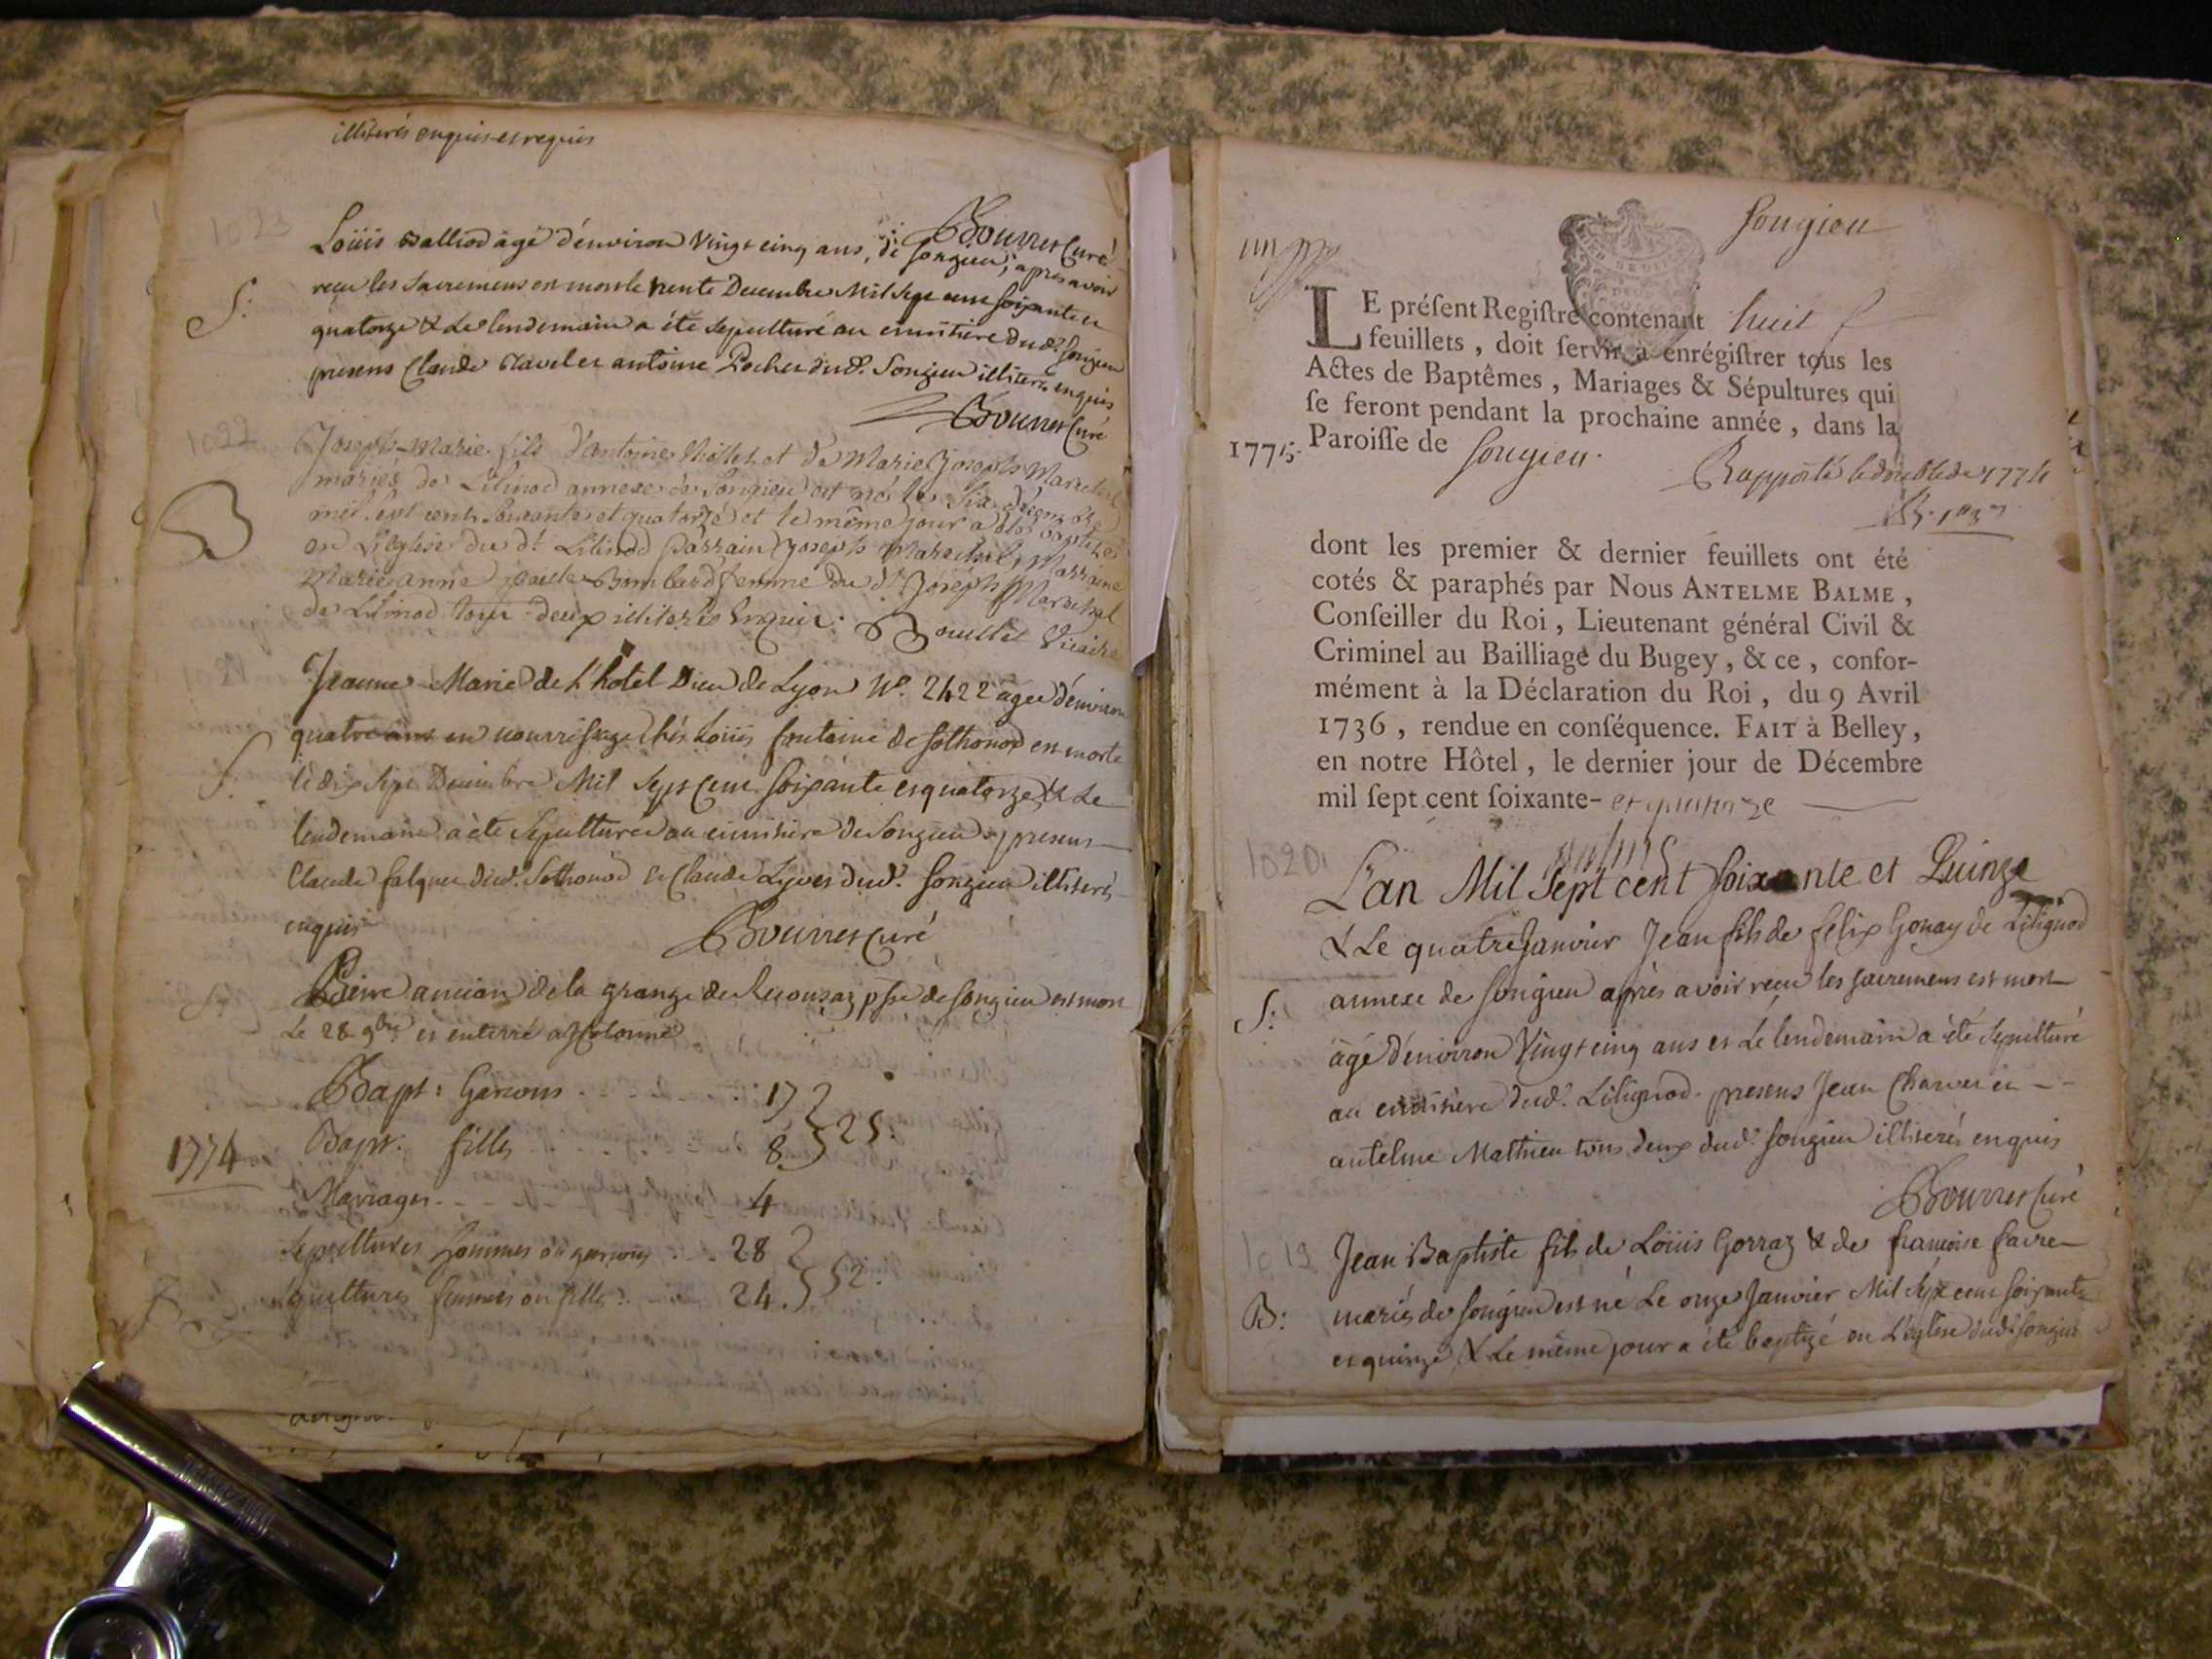 illiterés enquis et requis
Bourret Curé
Loüis Balliod âgé d'environ vingt cinq ans, de Songieu, apres avoir
reçu les sacremens est mort le trente Decembre Mil sept cent soixante et
quatorze & Le lendemain a été sepulturé au cimitiere dud. Songieu
presens Claude Clavel et antoine Pochet dud. Songieu illiterés enquis
Bourret Curé
1022
Joseph-Marie fils d'antoine et de Marie Joseph Marechal
mariés de Lilinod annexe de Songieu est né le six décembre
mil sept cent soixante et quatorze et le même jour a été baptisé
en L'église du dt Lilinod Parrain Joseph Marechal, Marraine
Marie anne femme du dt Joseph Marechal
de Lilinod tous deux illiterés enquis. Bouillet Vicaire
S.
Jeanne-Marie de L'hotel Dieu de Lyon No. 2422 âgée d'environ
quatre ans en nourrissage Chés Loüis fontaine de Sothonod est morte
le dix sept Decembre Mil Sept Cent soixante et quatorze & Le
lendemain a été sepulturée au cimitiere de Songieu. presens
Claude falquet dud. Sothonod et Claude Lyvet dud. Songieu illiterés
enquis
Bourret Curé
Pierre ancian de la grange de psse de Songieu est mort
Le 28 9bre et enterré a
Bapt: Garcons 17
Bapt. filles 8 25.
1774
Mariages 4
Sepultures hommes ou garcons 28
Sepultures femmes ou filles 24. 52.
Songieu
LE préſent Regiſtre contenant huit
feuillets, doit ſervir à enrégiſtrer tous les
Actes de Baptêmes, Mariages & Sépultures qui
ſe feront pendant la prochaine année, dans la
1775. Paroiſſe de Songieu.
Rapporté le double de 1774
dont les premier & dernier feuillets ont été
cotés & paraphés par Nous ANTELME BALME,
Conſeiller du Roi, Lieutenant général Civil &
Criminel au Bailliage du Bugey, & ce, confor-
mément à la Déclaration du Roi, du 9 Avril
1736, rendue en conſéquence. FAIT à Belley,
en notre Hôtel, le dernier jour de Décembre
mil ſept cent ſoixante- et quatorze
1020.
L'an Mil Sept cent soixante et Quinze
& Le quatre Janvier Jean fils de felix Gonay de Lilignod
annexe de Songieu après avoir reçu les sacremens est mort
S:
âgé d'environ vingt cinq ans et Le lendemain a été sepulturé
au cimitiere dud. Lilignod. presens Jean Charvet et
antelme Mathieu tous deux dud. Songieu illiterés enquis
Bourret Curé
1019
Jean Baptiste fils de Loüis Gorraz & de francoise favre
B: mariés de Songieu est né Le onze Janvier Mil Sept cent soixante
et quinze & Le même jour a été baptizé en L'église dud. Songieu